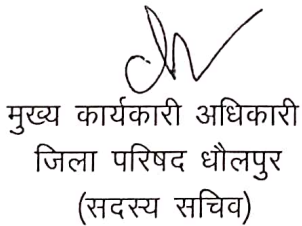 मुख्य कार्यकारी अधिकारी
जिला परिषद धौलपुर
(सदस्य सचिव)